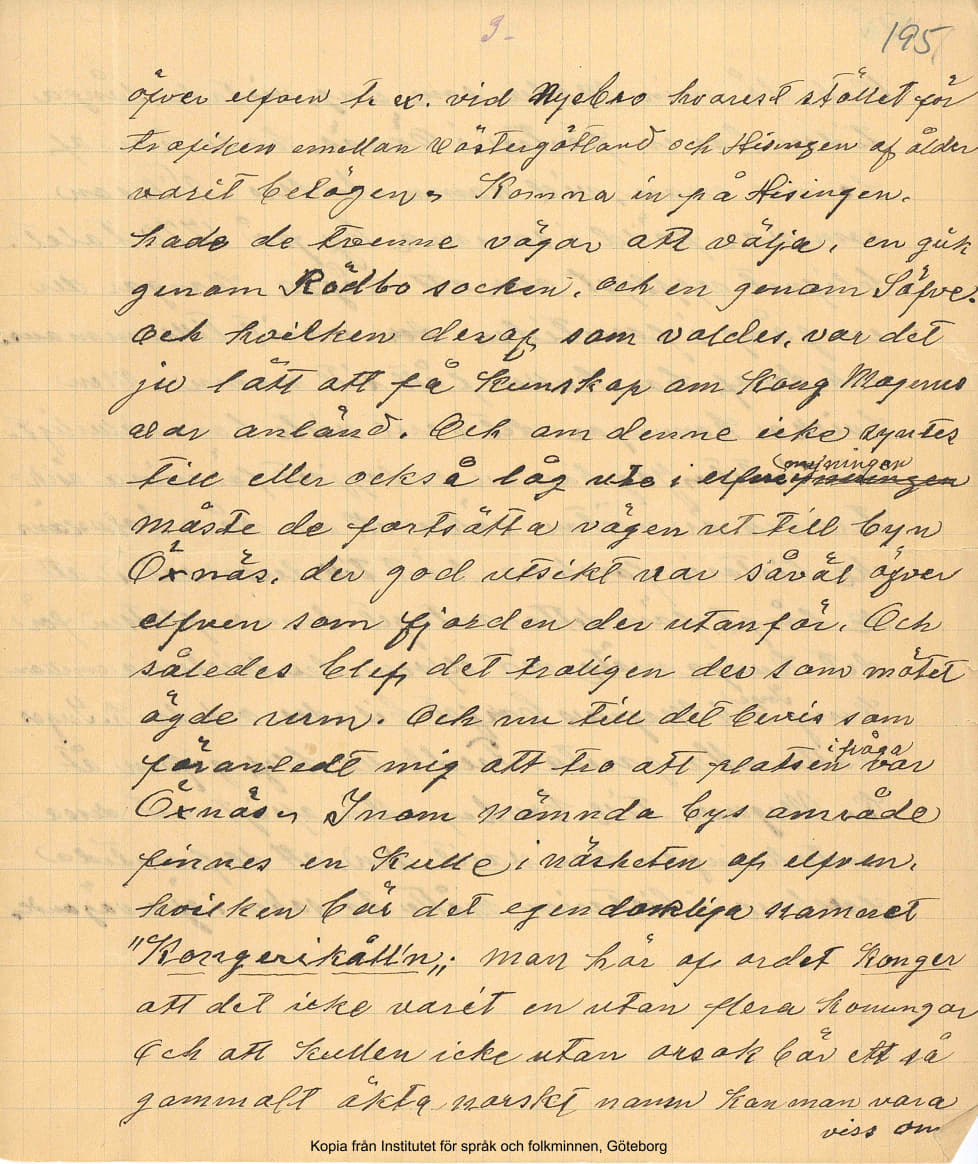 3-
195
öfver elfven t. ex. vid Nyebro hvarest stället för
trafiken emellan Västergötland och Hisingen af ålder
varit belägen, Komna in på Hisingen.
hade de tvenne vägar att välja, en gick
genom Rödbo socken, och en genom Säfve.
Och hvilken deraf som valdes, var det
ju lätt att få kunskap om Kong Magnus
var anländ. Och om denne icke syntes
till eller också låg ute i mynningen
måste de fortsätta vägen ut till byn
Öxnäs, der god utsikt var såväl öfver
elfven som fjorden der utanför. Och
således blef det troligen der som mötet
ägde rum. Och nu till det bevis som
föranledt mig att tro att platsen ifråga var
Öxnäs, Inom nämnda bys område
finnes en Kulle i närheten af elfven,
hvilken bär det egendomliga namnet
"Kongerikåll'n„; man hör af ordet Konger
att det icke varit en utan flera konungar
Och att kullen icke utan orsak bär ett så
gammalt äkta norskt namn kan man vara
viss om
Kopia från Institutet för språk och folkminnen, Göteborg